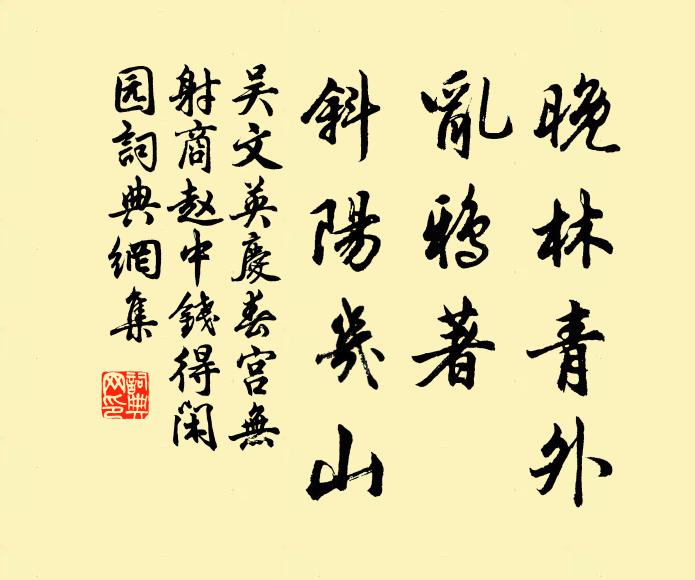 晚林青外
亂鴉著
斜陽幾山
吴文英慶春宮無
射商赵中錢得閑
园詞典網集
詞典
网印